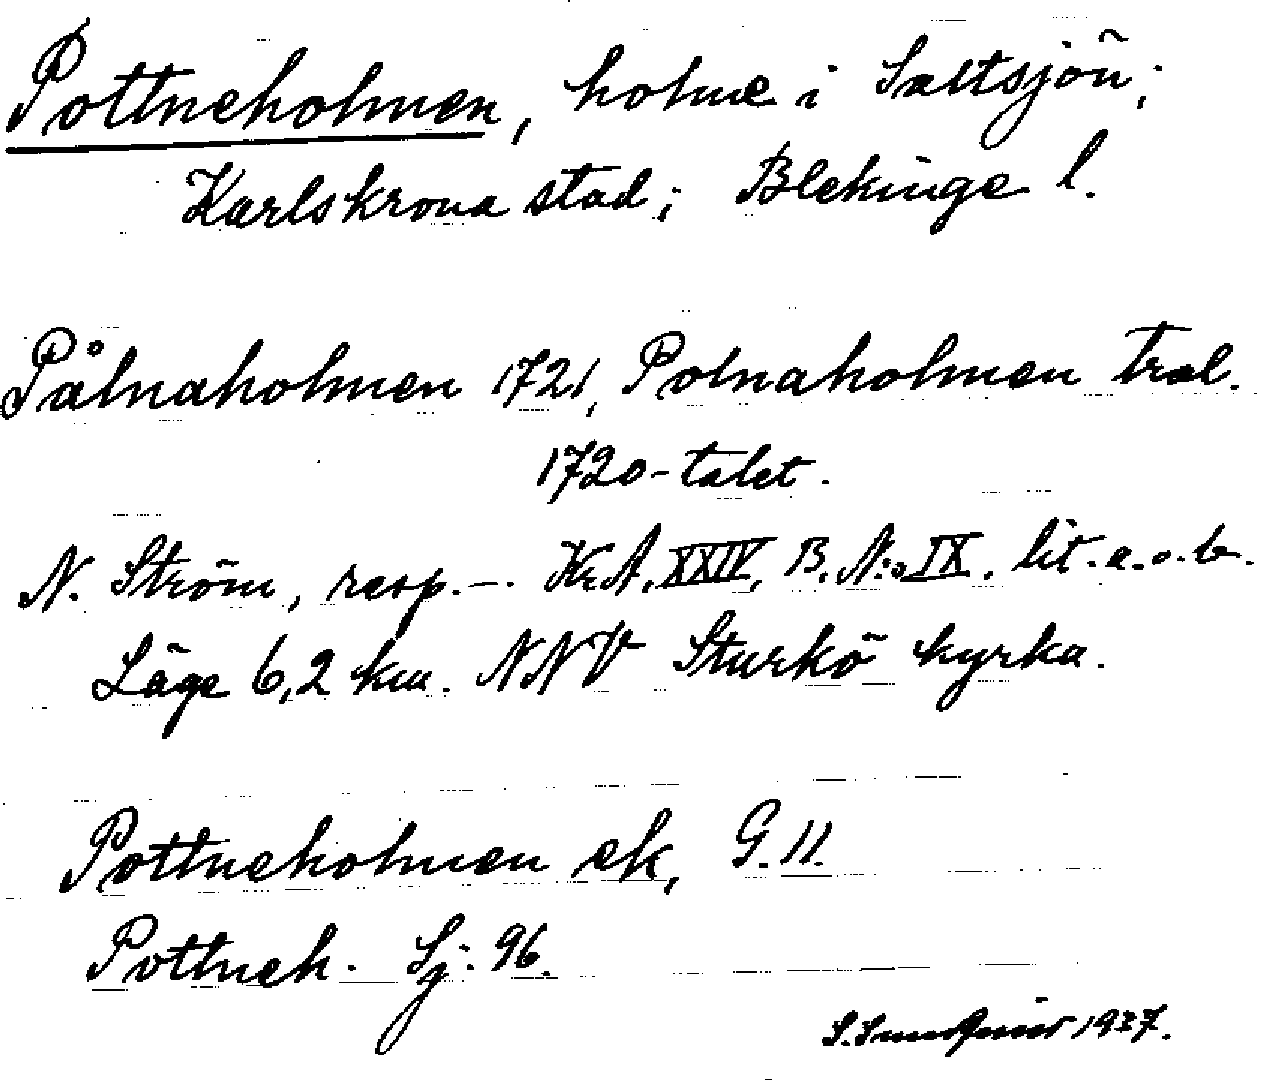 Pottneholmen, holme i Saltsjön;
Karlskrona stad; Blekinge l.
Pålnaholmen 1721, Polnaholmen tral.
1720-talet.
N. Ström, resp. —. Kr.A. XXIV, B. N:o IX. lit. a. o. b.
Läge 6,2 km. NNV Sturkö kyrka.
Pottneholmen ek, G. 11.
Pottneh. Sj: 96.
S. Sundqvist 1937.